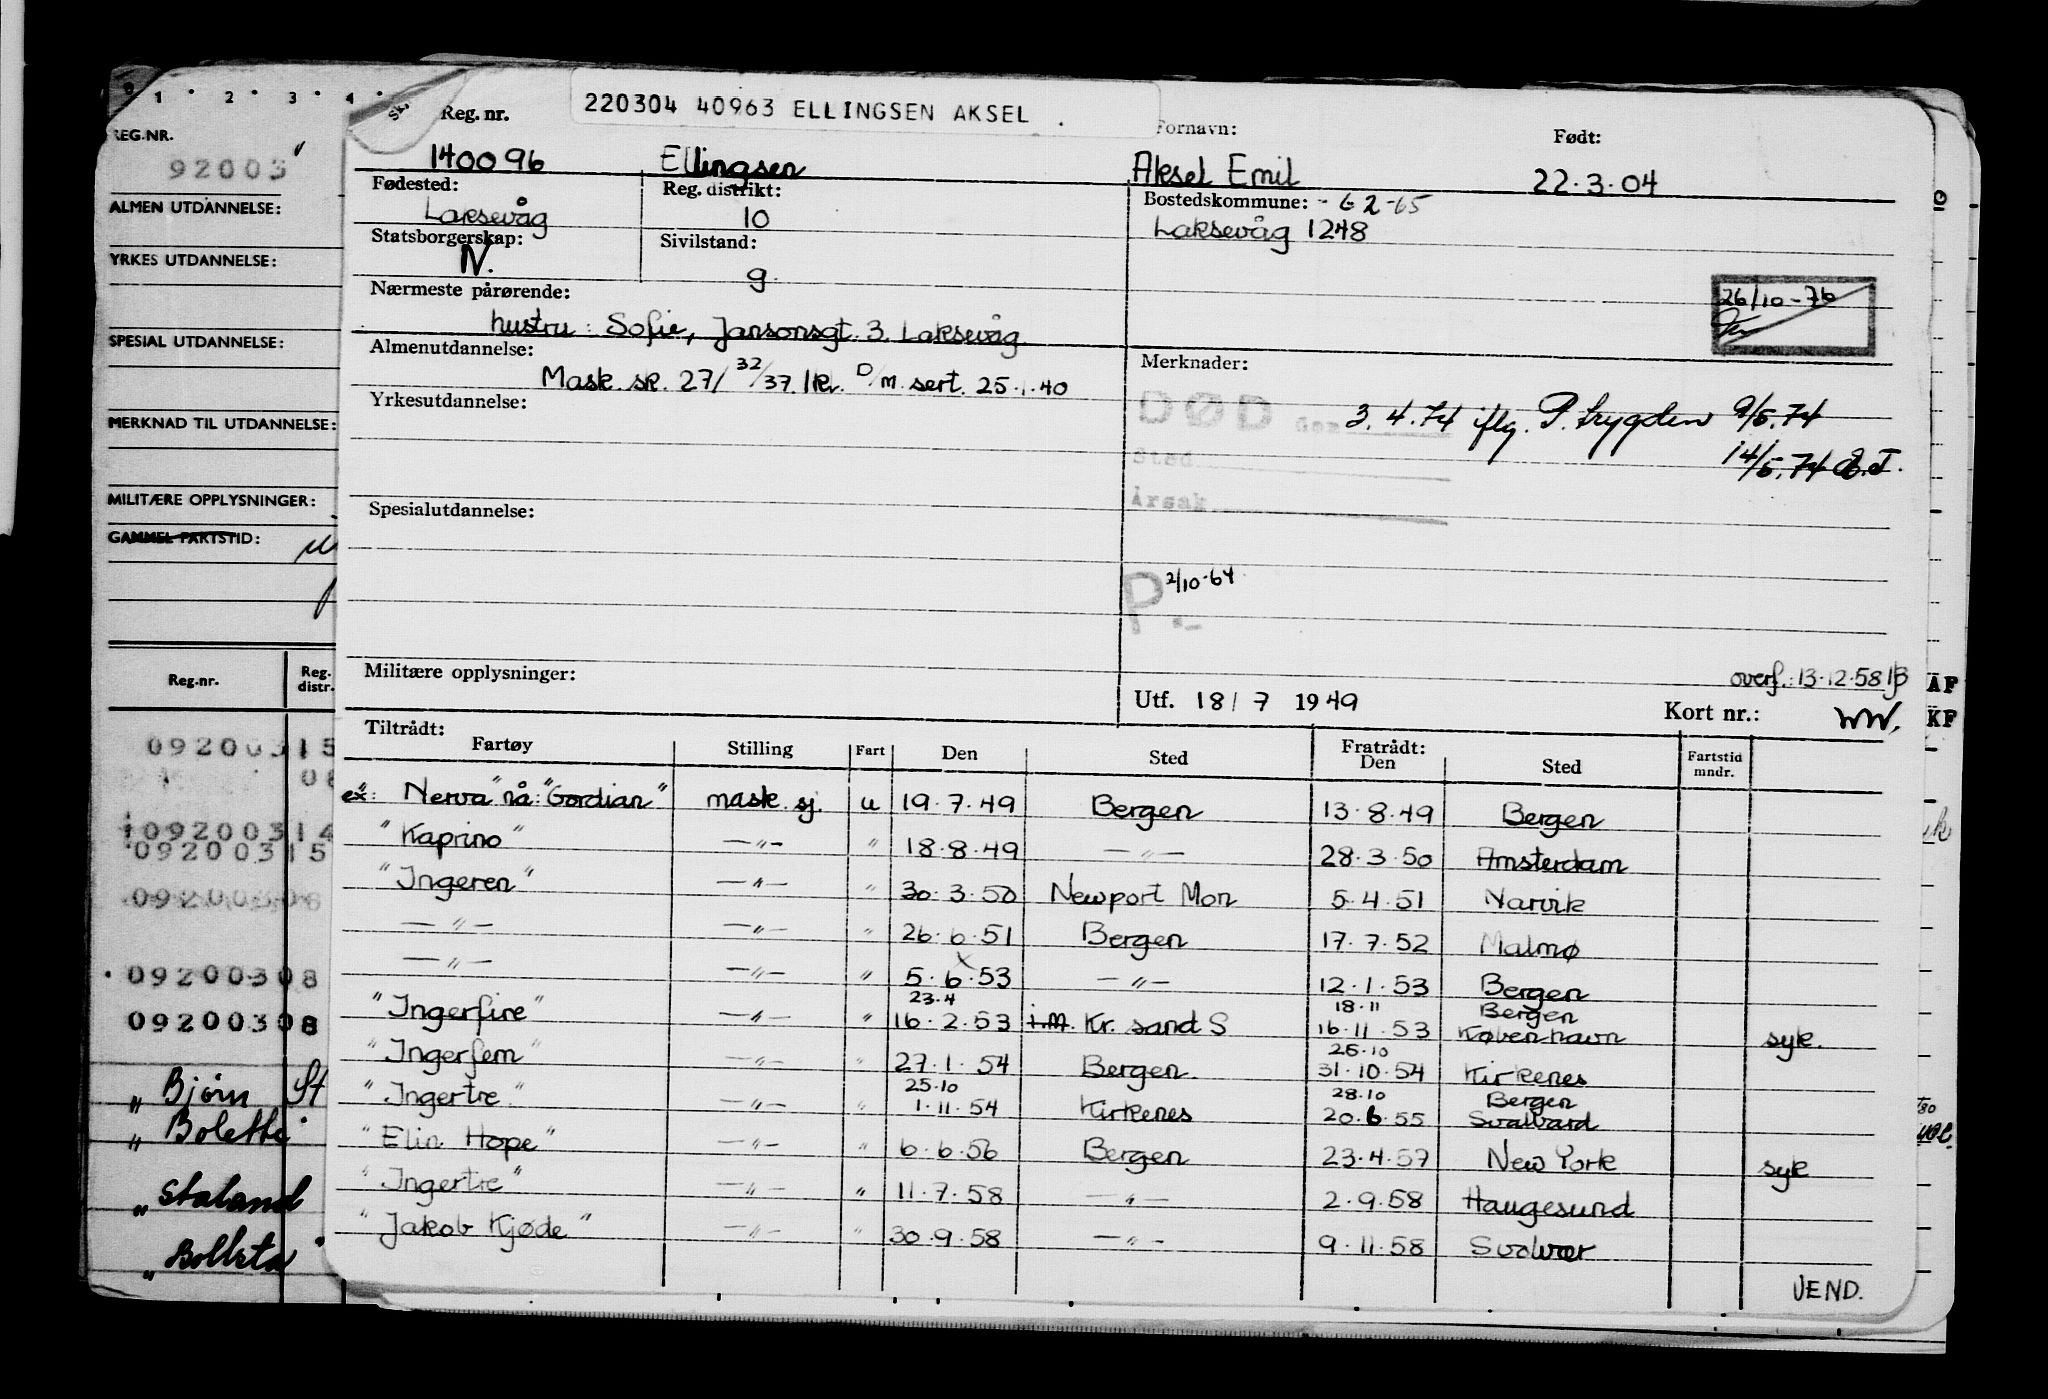 0 1 2 3 4
REG.NR.
92003
ALMEN UTDANNELSE:
YRKES UTDANNELSE:
SPESIAL UTDANNELSE:
MERKNAD TIL UTDANNELSE:
MILITÆRE OPPLYSNINGER:
GAMMEL FARTSTID:
Reg.nr. Reg. distr.
09200315
08
09200314
09200315
09200308
09200308
09200308
„ Bjørn St
„ Bolette
„ Staland
„ Bollsta
Sk.
Reg. nr. 220304 40963 ELLINGSEN AKSEL . Fornavn: Født:
140096 Ellingsen Aksel Emil 22.3.04
Fødested: Reg. distrikt: Bostedskommune: - 6 2-65
Laksevåg 10 Laksevåg 1248
Statsborgerskap: Sivilstand:
N. g.
26/10-76
Nærmeste pårørende:
hustru: Sofie, Jansonsgt. 3. Laksevåg
Almenutdannelse: Merknader:
Mask. sk. 27/ 32/37. 1kl. D/m. sert. 25.1.40
DØD den 3.4.74 iflg. P.trygden 9/5.74
Sted 14/5.74 E.T.
Årsak
Yrkesutdannelse:
Spesialutdannelse:
P 2/10-64
Militære opplysninger:
overf.: 13.12.58
Utf. 18/7 1949 Kort nr.:
ÄF
KF
Tiltrådt: Fratrådt:
Fartøy Stilling Fart Den Sted Den Sted Fartstid mndr.
ex: "Nerva" nå: "Gordian" mask. sj. u 19.7.49 Bergen 13.8.49 Bergen
"Kaprino" —〃— 〃 18.8.49 —〃— 28.3.50 Amsterdam
"Ingeren" —〃— 〃 30.3.50 Newport Mon 5.4.51 Narvik
—〃— —〃— 〃 26.6.51 Bergen 17.7.52 Malmø
—〃— —〃— 〃 5.6.53 x —〃— 12.1.53 Bergen
23.4 18.11 Bergen
"Ingerfire" —〃— 〃 16.2.53 i.m. Kr. sand S 16.11.53 København syk.
25.10
"Ingerfem" —〃— 〃 27.1.54 Bergen 31.10.54 Kirkenes
25.10 28.10 Bergen
"Ingertre" —〃— 〃 1.11.54 Kirkenes 20.6.55 Svalbard
"Elin Hope" —〃— 〃 6.6.56 Bergen 23.4.57 New York syk
"Ingertre" —〃— 〃 11.7.58 —〃— 2.9.58 Haugesund
"Jakob Kjøde" —〃— 〃 30.9.58 —〃— 9.11.58 Svolvær
VEND.